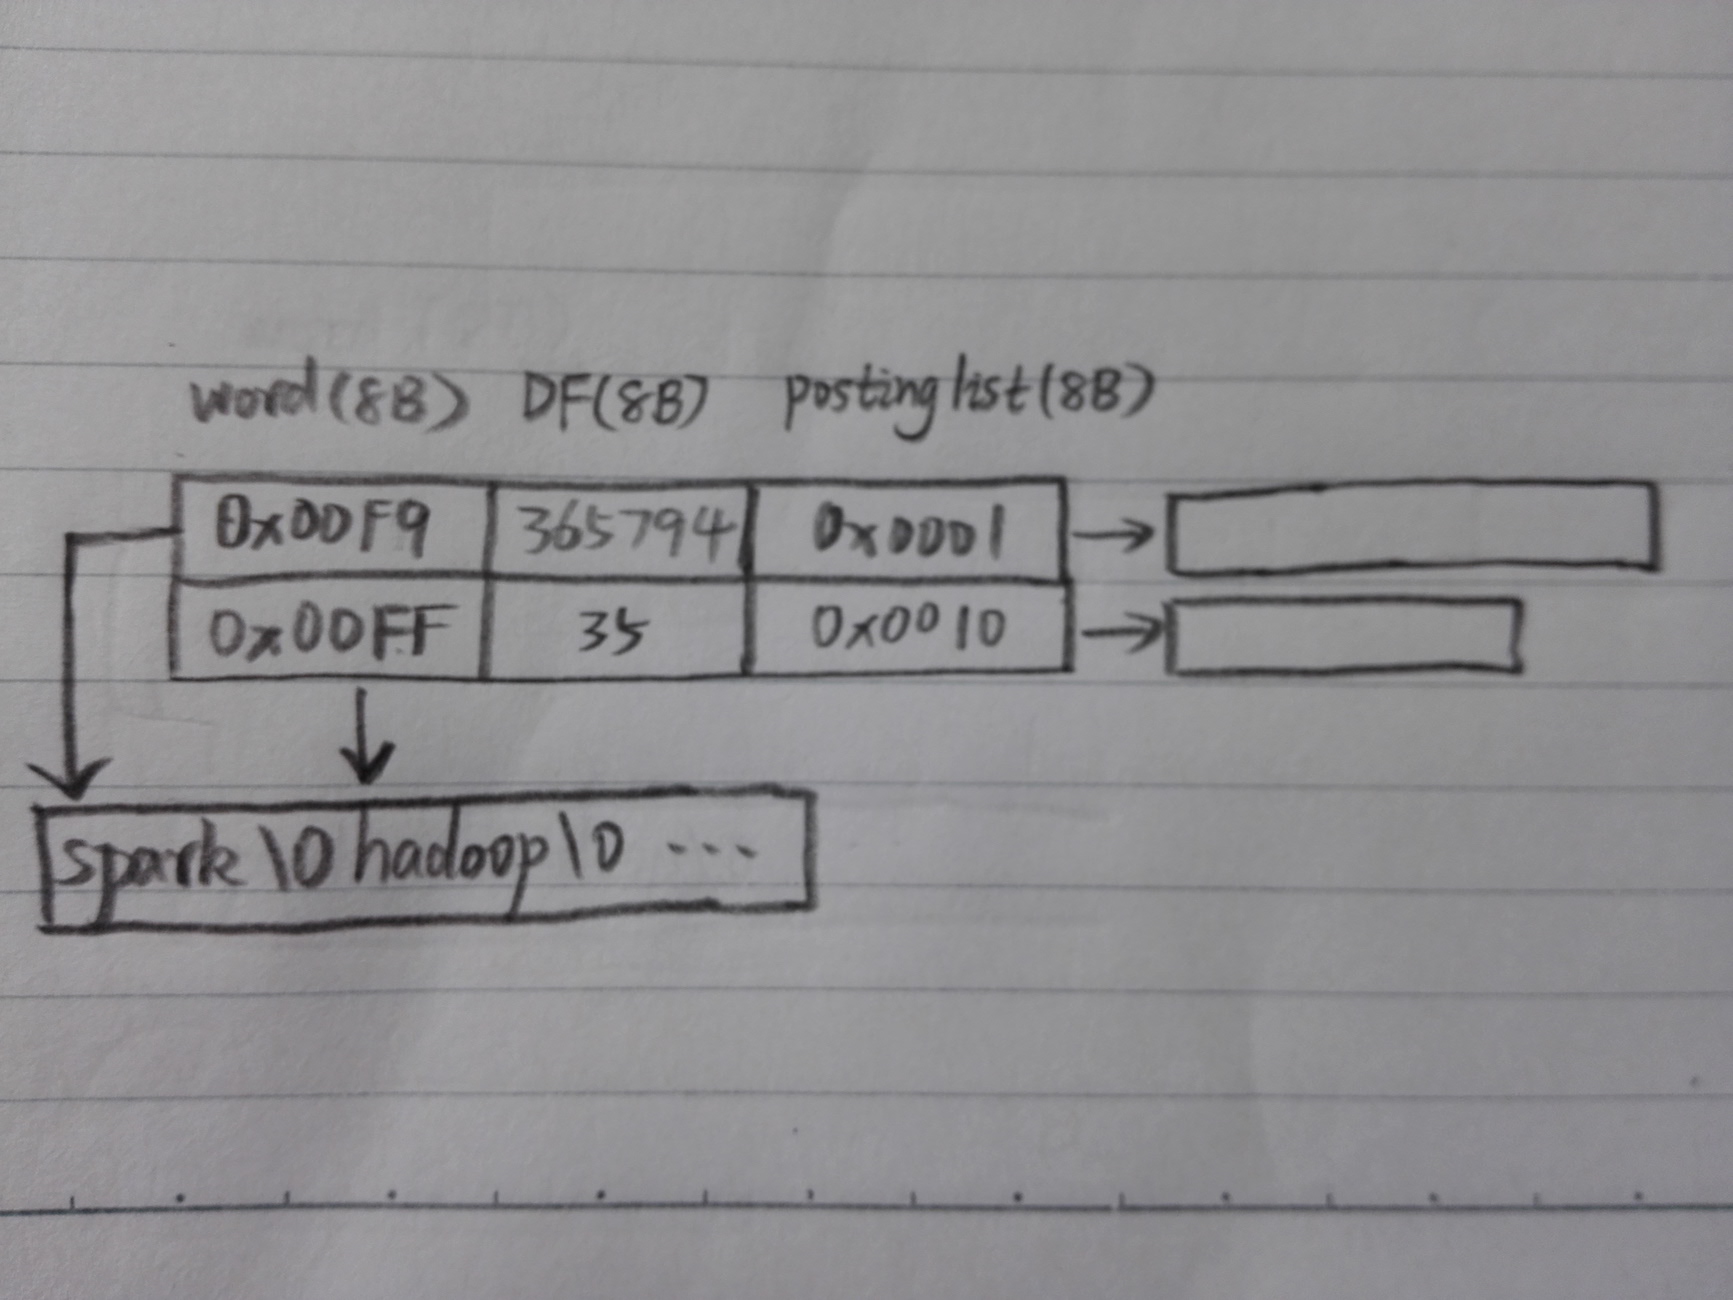 word(8B) DF(8B) posting list(8B)
0x00F9 365794 0x0001
0x00FF 35 0x0010
spark\0hadoop\0 ...